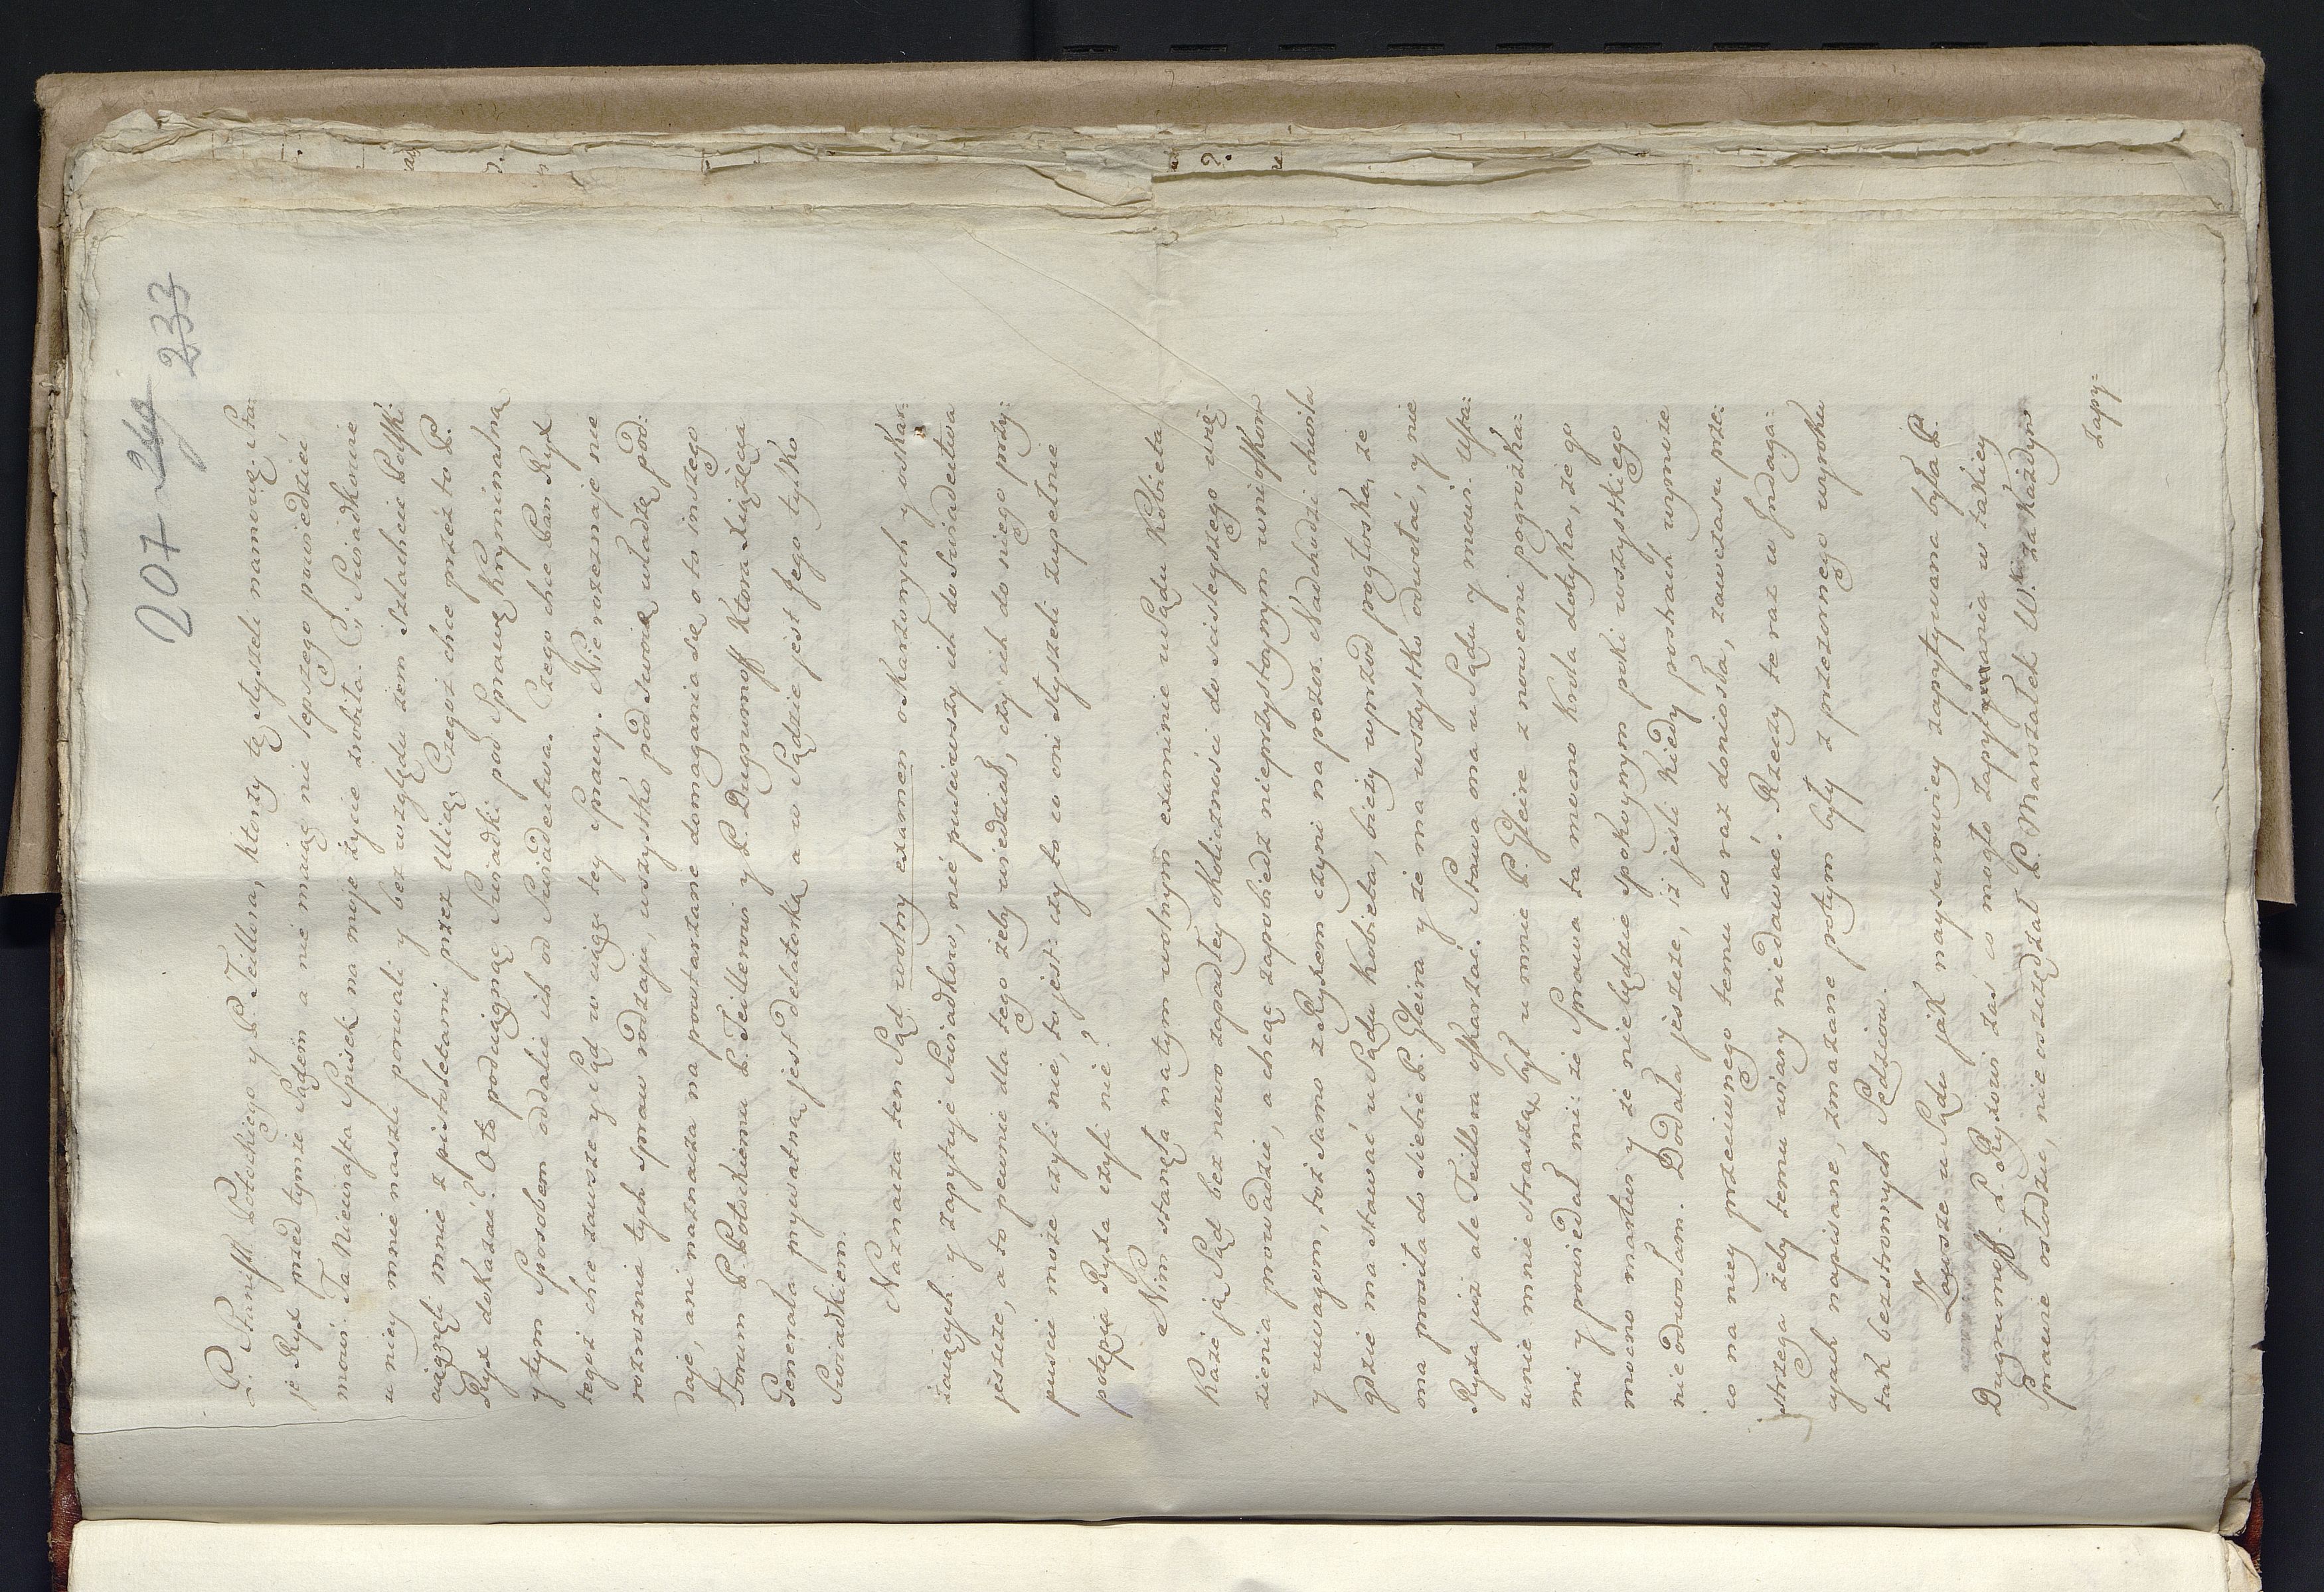 207 249
233
P. Stanisł. Potockiego y P. Teillora, ktorzy tę słyszeli namowę. Sta:
je Ryx przed tymże Sądem a nie maiąc nic lepszego powiedzieć
mowi: Ta Niewiasta Spisek na moje życie zrobiła. Ci Swiadkowie
u niey mnie naszli porwali y bez względu żem Szlachcic Polski
ciągnęli mnie z pistoletami przez Ulicę. Czegoż chce przez to P.
Ryx dokazać? Oto podciągnąć Swiadki pod Sprawę Kryminalną
y tym Sposobem oddalić ich od Swiadectwa. Czego chce Pan Ryx
tegoż chce zawsze y Sąd w ciągu tey Sprawy. Nie rozeznaje nie
rozroznia tych spraw rodzaju, wszystko pod swoię władzę pod:
daje, ani naznacza na powtarzane domagania się o to inszego
Forum P. Potockiemu P. Teillorowi y P. Dugrumoff ktora Xiążęcia
Generała prywatną jest delatorką a w Sądzie jest Jego tylko
Swiadkiem.
Naznacza ten Sąd wolny examen oskarżonych y oskar:
żaiących y zapytuje Swiadkow, nie puściwszy ich do Swiadectwa
jeszcze, a to pewnie dla tego żeby wiedział, czy ich do niego przy:
puścić może czyli nie, to jest: czy to co oni słyszeli zupełnie
potępia Ryxa czyli nie?
Nim stanęła na tym wolnym examinie u Sądu Kobieta
każe ją Sąd bez nowo zapadłey okoliczności do ściśleyszego wię:
zienia prowadzić, a chcąc zapobiedz nieprzystoynym wnioskom
y uwagom, toż samo z Ryxem czyni na pozor. Nadchodzi chwila
gdzie ma stawać u Sądu kobieta, bieży wprzod pogłoska że
ona prosiła do siebie P. Gleira y że ma wszystko odwołać, y nie
Ryxa już ale Teillora oskarżać. Stawa ona u Sądu y mowi. Upa:
wnie mnie straszą, był u mnie P. Gleire z nowemi pogrożka:
mi y powiedał mi: że Sprawa ta mocno Krola dotyka, że go
mocno martwi y że nie będzie spokoynym poki wszystkiego
nie odwołam. Dodała jeszcze, iż jeśli kiedy postrach wymoże
co na niey przeciwnego temu co raz doniosła, zawczasu prze:
strzega żeby temu wiary niedawać. Rzeczy te raz w Indaga:
cyach napisane, zmazane potym były z przezornego wyroku
tak bezstronnych Sędziow.
Zawsze u Sądu jak naysurowiey zapytywana była P.
Dugrumoff. P. Ryxowi zaś co mogło zapytywania w takiey
Sprawie osłodzic, nie oszczędzał P. Marszałek W. za każdym
zapy: